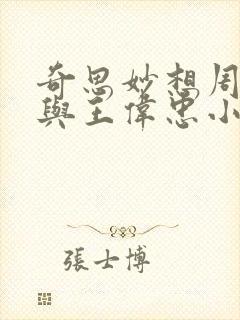 奇思妙想周
與王偉忠小
張士博